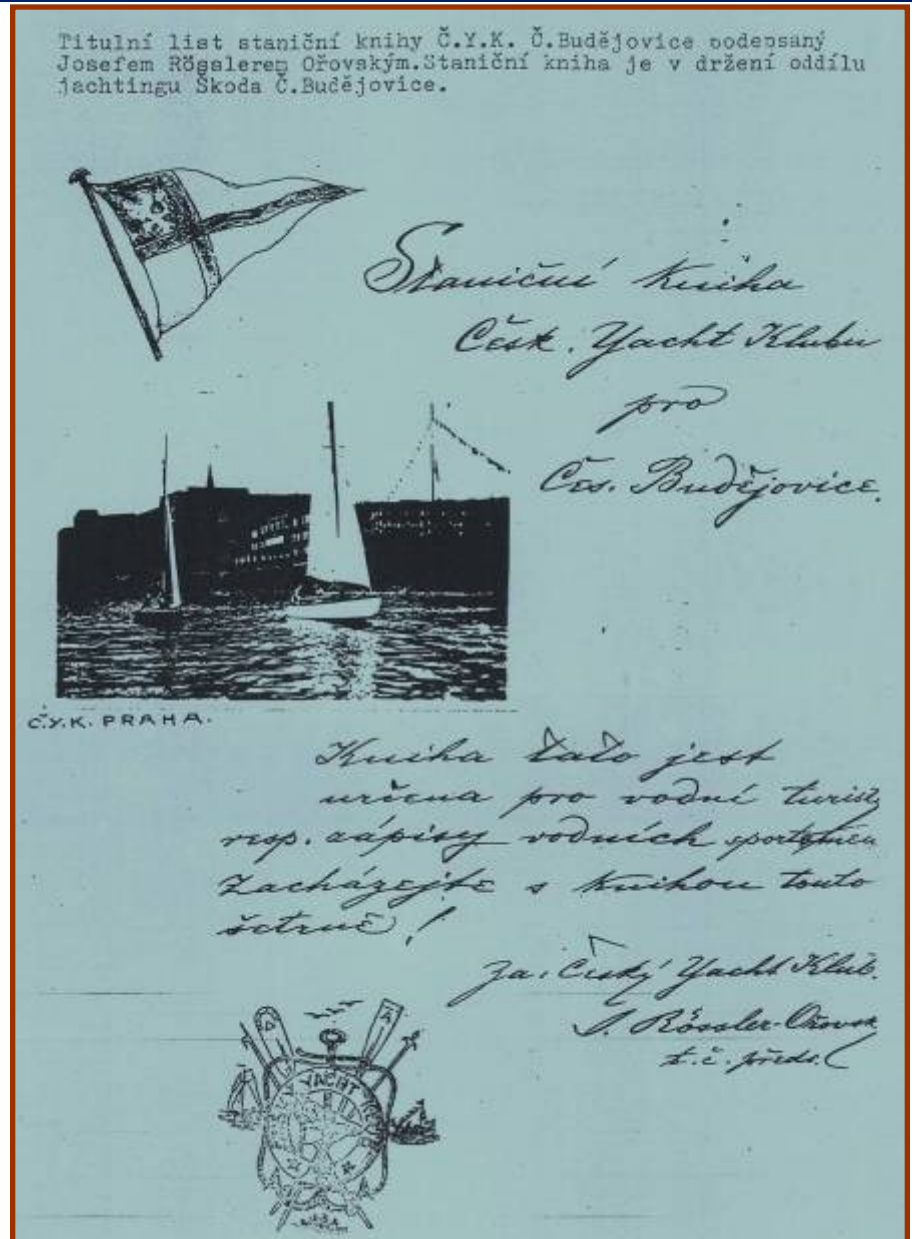 Titulní list staniční knihy Č.Y.K. Č.Budějovice podepsaný
Josefem Rösslerem Ořovským.Staniční kniha je v držení oddílu
jachtingu Škoda Č.Budějovice.
Staniční Kniha
Česk. Yacht Klubu
pro
Čes. Budějovice.
Č.Y.K. PRAHA.
Kniha tato jest
určena pro vodní turisty
resp. zápisy vodních sportsmen
Zacházejte s knihou touto
šetrně!
Za: Český Yacht Klub.
J. Rössler-Ořovsk
t.č. předs.
YACHT